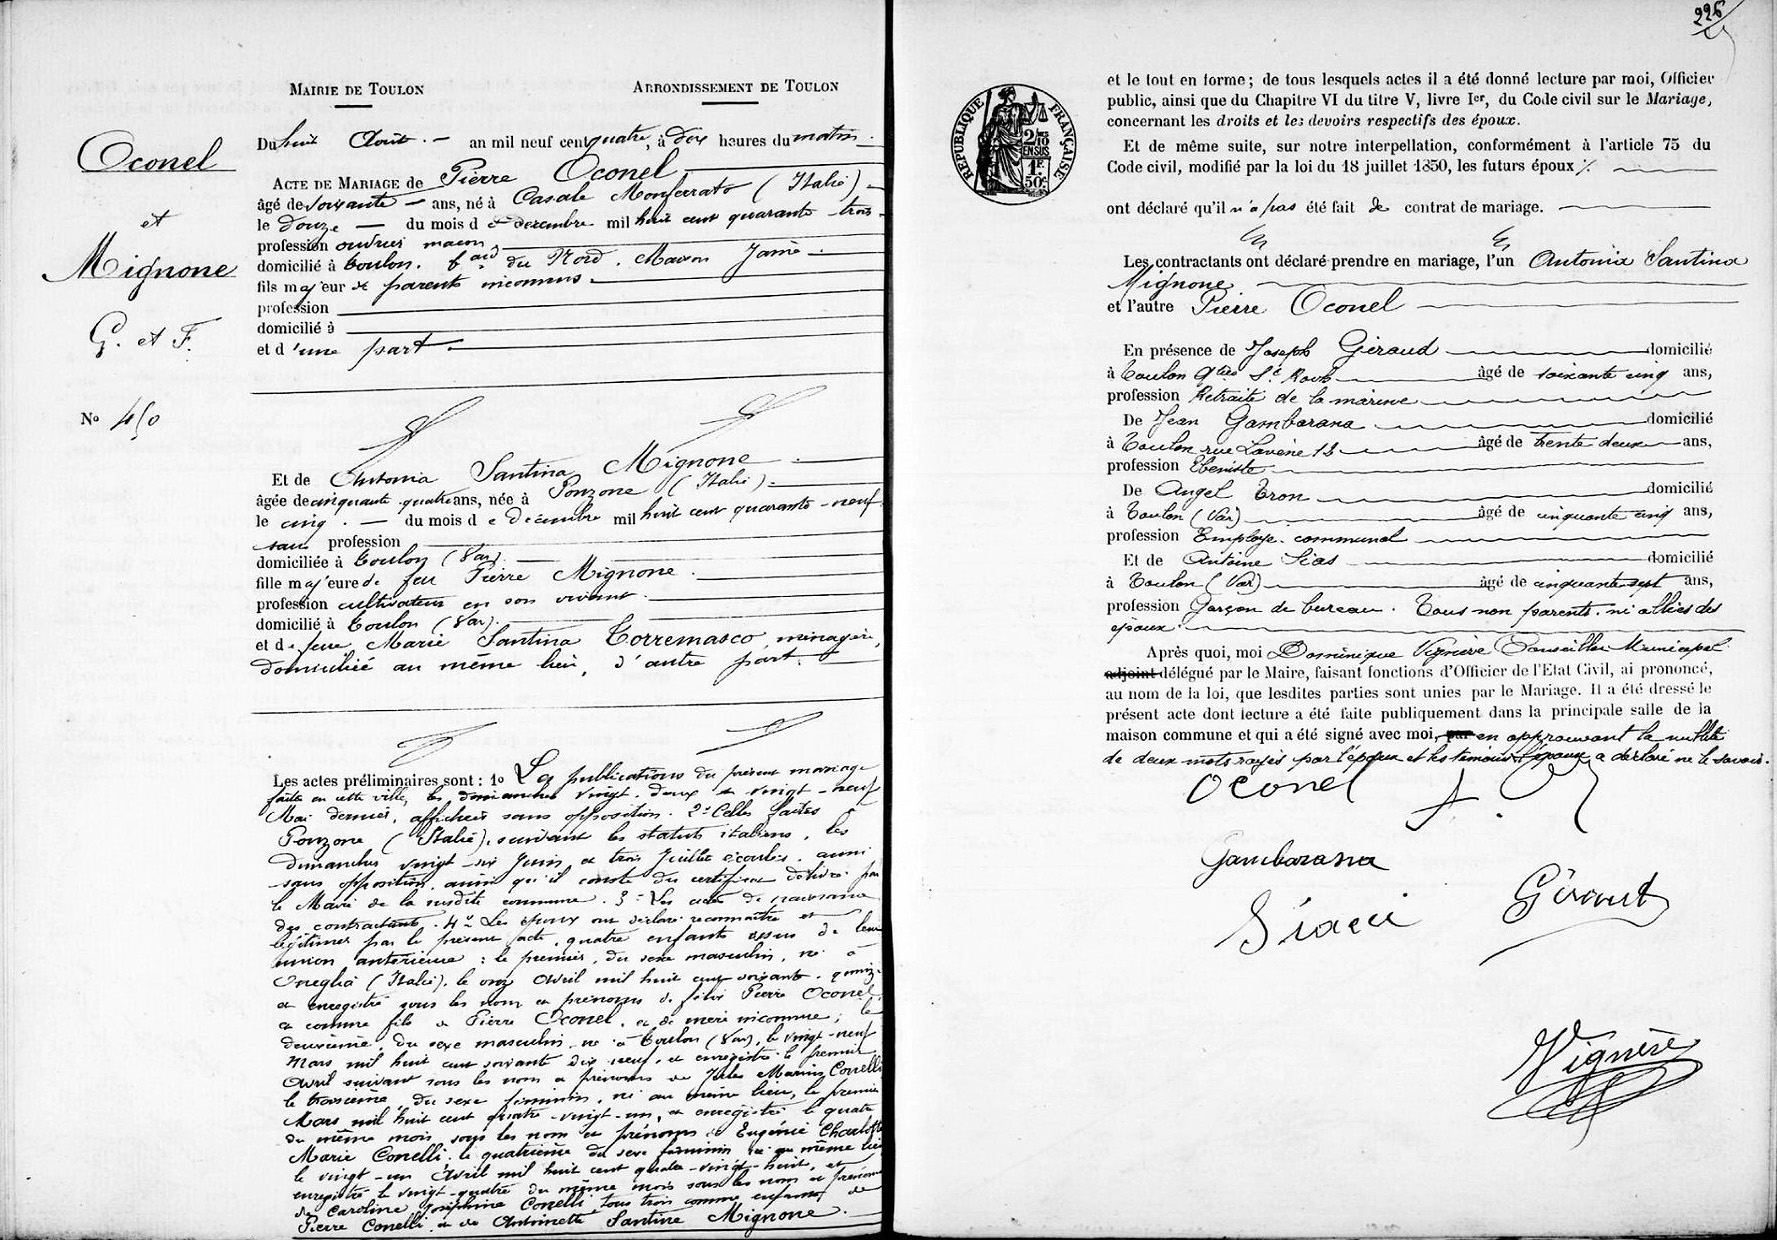 MAIRIE DE TOULON
ARRONDISSEMENT DE TOULON
Oconel
et
Mignone
G. et F.
No 450
Du huit Août. — an mil neuf cent quatre, à dix heures du matin.
ACTE DE MARIAGE de Pierre Oconel
âgé de soixante — ans, né à Casale Monferrato (Italie)
le douze — du mois de décembre mil huit cent quarante-trois
profession ouvrier maçon
domicilié à Toulon. bard du Nord. Maison
fils majeur de parents inconnus.
profession
domicilié à
et d'une part.
Et de Antonia Santina Mignone
âgée de cinquante quatre ans, née à Ponzone (Italie)
le cinq. — du mois de décembre mil huit cent quarante-neuf
sans profession
domiciliée à Toulon (Var).
fille majeure de feu Pierre Mignone.
profession cultivateur en son vivant.
domicilié à Toulon (Var).
et de feue Marie Santina Torremasco ménagère,
domiciliée au même lieu, d'autre part.
Les actes préliminaires sont : 1o Les publications du présent mariage
faites en cette ville, les dimanches vingt-deux et vingt-neuf
Mai dernier, affichées sans opposition. 2o Celles faites
Ponzone (Italie), suivant les statuts italiens, les
dimanches vingt-six Juin et trois Juillet écoulés, aussi
sans opposition, ainsi qu'il conste du certificat délivré par
le Maire de la susdite commune. 3o Les actes de naissance
des contractants. 4o Les époux ont déclaré reconnaître et
légitimer par le présent acte, quatre enfants issus de leur
union antérieure : le premier, du sexe masculin, né à
Oneglia (Italie), le onze Avril mil huit cent soixante-quinze
et enregistré sous les nom et prénoms de Pierre Oconel
et comme fils de Pierre Oconel, et de mère inconnue ; le
deuxième, du sexe masculin, né à Toulon (Var), le vingt-neuf
Mars mil huit cent soixante dix neuf, et enregistré le premier
Avril suivant sous les nom et prénoms de Jules Marius Conelli
le troisième, du sexe féminin, né au même lieu, le premier
Mars mil huit cent quatre-vingt-un, et enregistré le quatre
du même mois sous les nom et prénoms de Eugénie Charlotte
Marie Conelli. le quatrième du sexe féminin né au même lieu
le vingt-un Avril mil huit cent quatre-vingt-huit, et
enregistré le vingt-quatre du même mois sous les nom et prénoms
de Caroline Joséphine Conelli tous trois comme enfants de
Pierre Conelli et de Antoinette Santine Mignone.
226
RÉPUBLIQUE FRANÇAISE
2/10 EN SUS
1F. 50c.
et le tout en forme ; de tous lesquels actes il a été donné lecture par moi, Officier
public, ainsi que du Chapitre VI du titre V, livre Ier, du Code civil sur le Mariage,
concernant les droits et les devoirs respectifs des époux.
Et de même suite, sur notre interpellation, conformément à l'article 75 du
Code civil, modifié par la loi du 18 juillet 1850, les futurs époux
ont déclaré qu'il n'a pas été fait de contrat de mariage.
Les contractants ont déclaré prendre en mariage, l'un Antonia Santina
Mignone
et l'autre Pierre Oconel
En présence de Joseph Géraud domicilié
à Toulon qtier St Roch âgé de soixante cinq ans,
profession Retraité de la marine
De Jean Gambarana domicilié
à Toulon rue Lavène 13 âgé de trente deux ans,
profession Ebéniste
De Angel Tron domicilié
à Toulon (Var) âgé de cinquante cinq ans,
profession Employé communal
Et de Antoine Sias domicilié
à Toulon (Var) âgé de cinquante sept ans,
profession Garçon de bureau. Tous non parents ni alliés des
époux.
Après quoi, moi Dominique Vignère Conseiller Municipal
adjoint délégué par le Maire, faisant fonctions d'Officier de l'Etat Civil, ai prononcé,
au nom de la loi, que lesdites parties sont unies par le Mariage. Il a été dressé le
présent acte dont lecture a été faite publiquement dans la principale salle de la
maison commune et qui a été signé avec moi, par en approuvant la nullité
de deux mots rayés par l'époux et les témoins l'épouse a déclaré ne le savoir.
Oconel
Gambarana
Géraut
Vignère